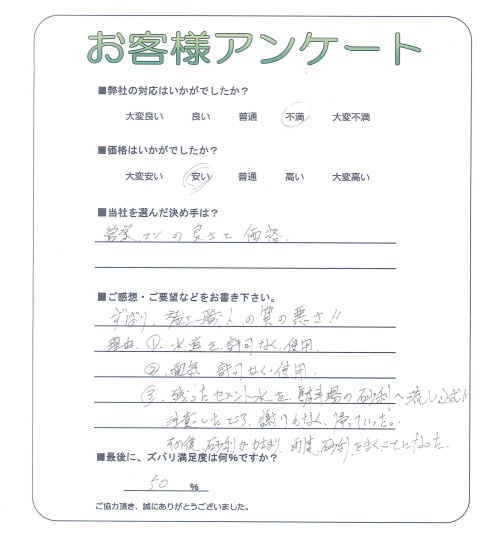 お客様アンケート
■弊社の対応はいかがでしたか？
大変良い 良い 普通 不満 大変不満
■価格はいかがでしたか？
大変安い 安い 普通 高い 大変高い
■当社を選んだ決め手は？
営業マンの良さと価格.
■ご感想・ご要望などをお書き下さい。
ずばり、施工職人の質の悪さ!!
理由 ①. 水道を許可なく使用.
②. 電気 許可なく使用.
③. 残ったセメント水を、駐車場の砂利へ流し込む
注意したところ、謝りもなく、帰っていった。
その後、砂利がかたまり、再度、砂利をまくことになった.
■最後に、ズバリ満足度は何%ですか？
50 %
ご協力頂き、誠にありがとうございました。